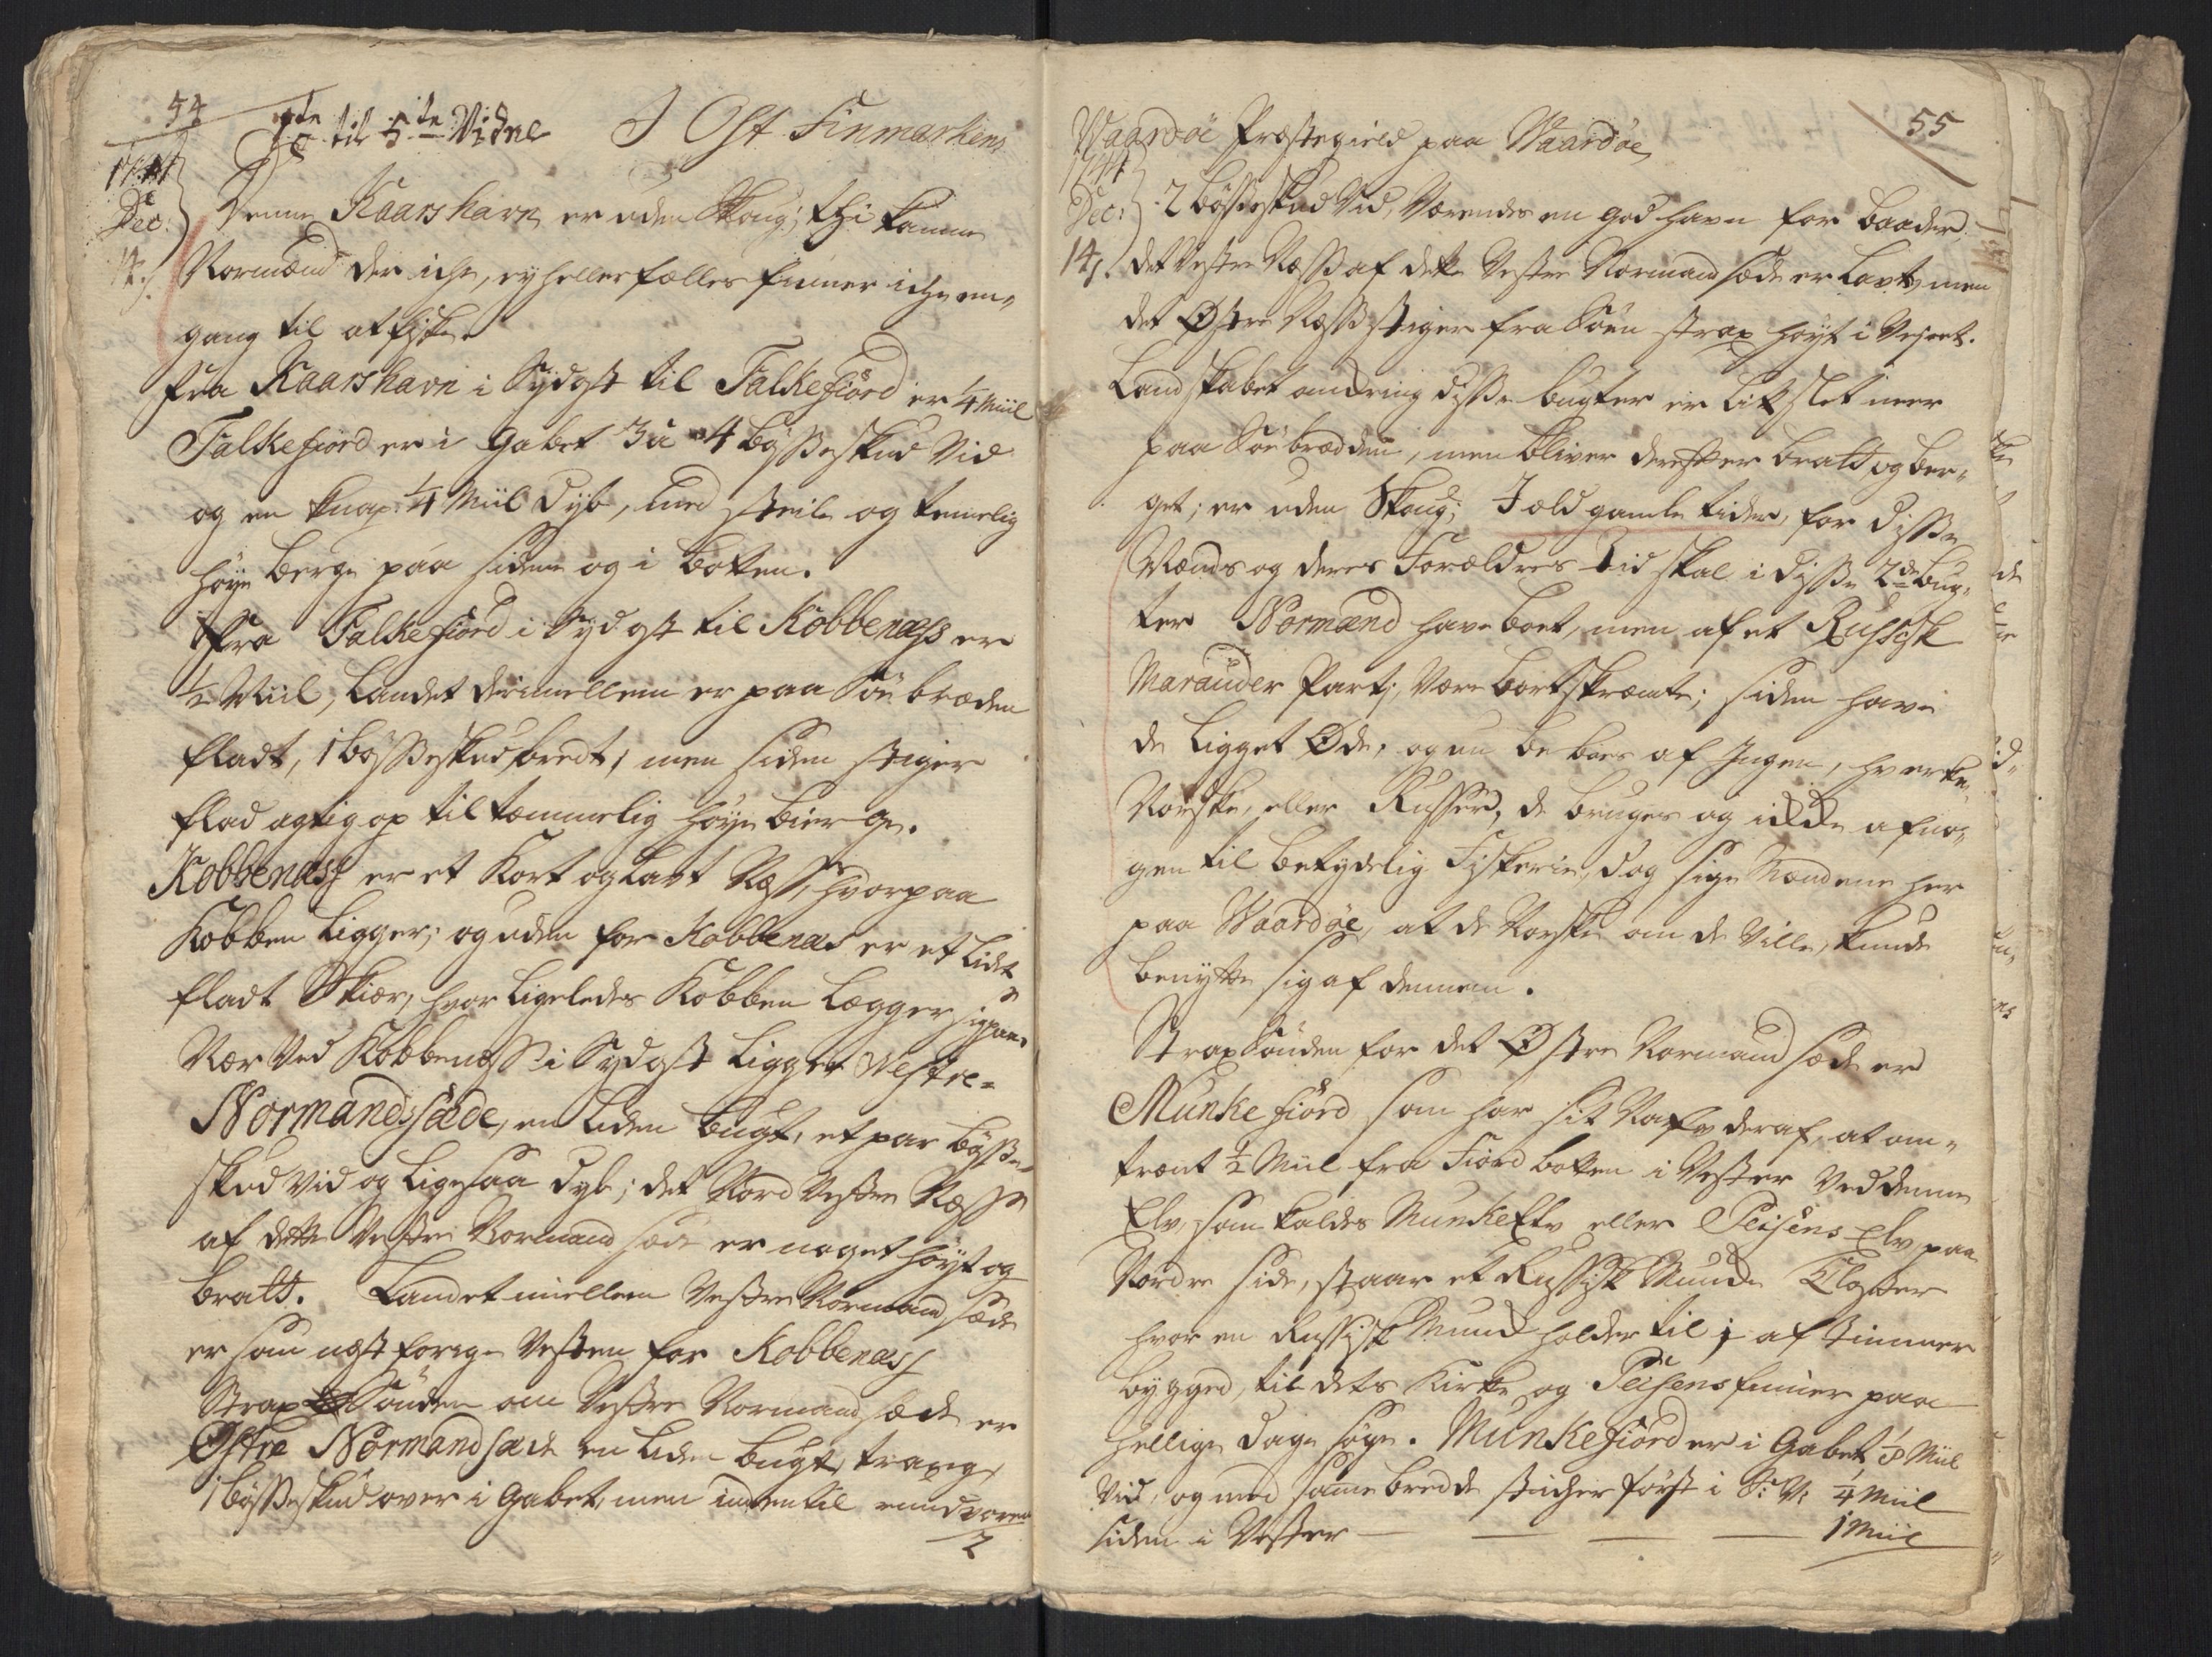 54
1te til 5te Vidne I Ost-Finmarkens
1744
Dec:
14.
Denne Kaarshavn er uden Skoug; thi komme
Normænd der icke, ej heller fælles finner icke en-
gang til at fiske.
fra Kaarshavn i Sydost til Falkefiord er 1/4 Miil
Falkefiord er i Gabet 3 à 4 bøsseskud vid
og en knap 1/4 Miil dyb, med steile og temelig
høye berge paa siderne og i botten.
Fra Falkefiord i Sydost til Kobbenæss er
1/2 Miil, Landet derimellem er paa Søe bræden
fladt, 1 bøsseskud bredt, men siden stiger
flad agtig op til temmelig høye bierge.
Kobbenæss er et Kort og Lavt Næss, hvorpaa
Kobben Ligger; og uden for Kobbenæs er et Lidet
fladt Skiær, hvor Ligeledes Kobben Lægger sig paa.
Nær ved Kobbenæss i Sydost Ligger Westre-
Normandssæde, en Liden bugt, et par bøsse-
skud vid og Ligesaa dyb; det Nord Vestre Næss
af dette Vestre Normand sæde er noget høyt og
bratt. Landet imellem Vestre Normand sæde
er som næst forige Vesten for Kobbenæss
Strax Sønden om Vestre Normand sæde er
Østre Normandsæde en Liden bugt, trang,
1 bøsseskud over i Gabet, men inden til rund vores
2
55
Waardøe Præstegield paa Waardøe
1744
Dec:
14.
2 bøsseskud Vid, Værendes en god havn for baader.
det Vestre Næss af dette Vestre Normand sæde er Lavt, men
det Østre Næss stiger fra Søen strax høyt i Vejret.
Landskabet omkring disse bugter er Lit slet neer
paa Søebrædden, men bliver derefter bratt og ber-
get; er uden Skoug; I old gamle tider, for disse
Mænds og deres Forældres tid skal i disse 2de bug-
ter Normænd have boet, men af et Russisk
Marauder Parti, være bortskræmte; siden have
de Ligget Øde, og nu be boes af Ingen, hverken
Norske, eller Russer, de bruges og ikke af no-
gen til betydelig Fiskerie, dog sige Mændene her
paa Waardøe, at de Norske om de Ville, kunde
benytte sig af dennem.
Strax Sønden for det Østre Normand sæde er
Munkefiord som har sit Nafn deraf, at om-
trent 1/2 Miil fra Fiord botten i Vester ved denne
Elv, som kaldes MunkeElv eller Peisens Elv, paa
Nordre side, staar et Russisk Munke Kloster
hvor en Russisk Munk holder til i af timmer
bygged, til dets Kirke og Peisens finner paa
hellige dage søge. Munkefiord er i Gabet 1/8 Miil
Vid, og med samme bredde sticker først i S: V: 1/4 Miil
siden i Vester — — — 1 Miil